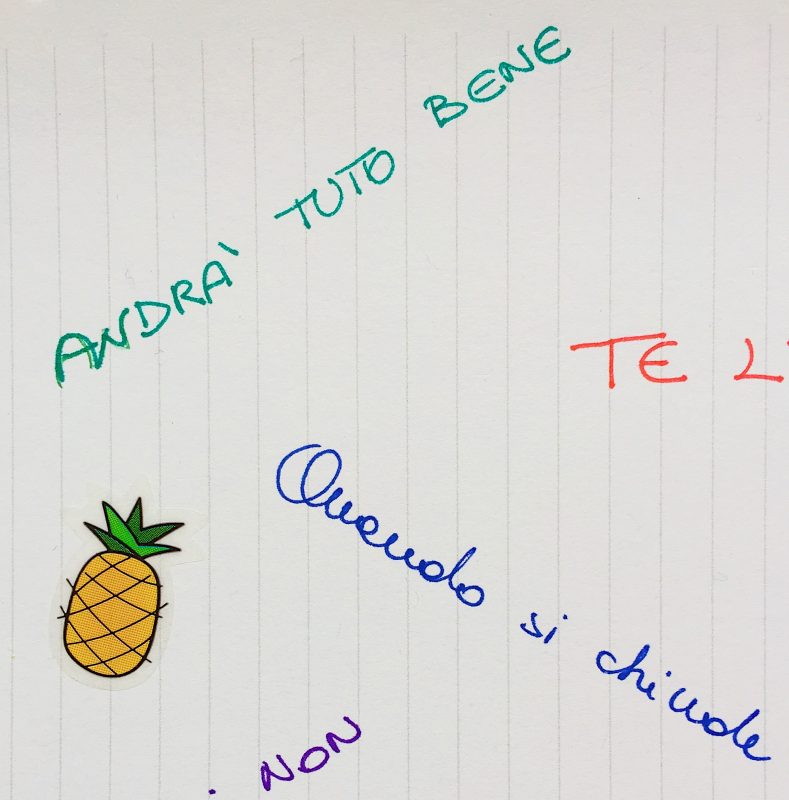 ANDRA' TUTO BENE
TE
Quando si chiude
NON